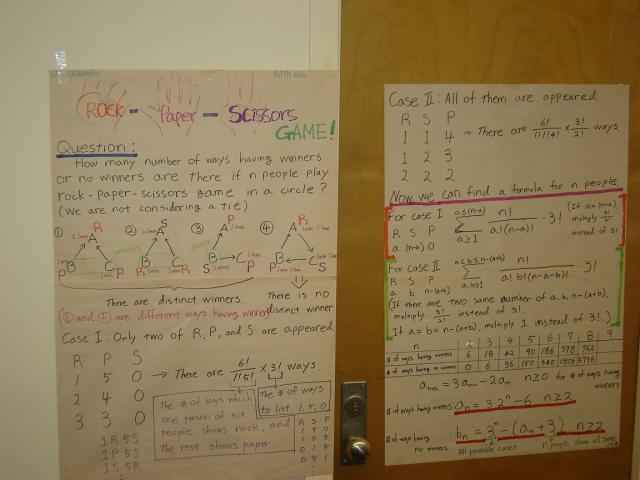 MATH 686
ROCK - Paper - Scissors
GAME!
Question:
How many number of ways having winners
or no winners are there if n people play
rock-paper-scissors game in a circle?
(We are not considering a tie)
① ② ③ ④
There are distinct winners.
There is no
distinct winner.
(① and ② are different ways having winner)
Case I: Only two of R, P, and S are appeared
R P S
1 5 0 → There are 6!/(1!5!) × 3! ways.
2 4 0
3 3 0
1R 5S
1P 5S
1S 5R
The # of ways which
one person of six
people shows rock, and
the rest shows paper
The # of ways
to list 1, 5, 0
R S P
1 5 0
1 0 5
0 1 5
0 5 1
Case II: All of them are appeared
R S P
1 1 4 → There are 6!/(1!1!4!) × 3!/2! ways
1 2 3
2 2 2
Now we can find a formula for n people
For case I
R S P
a (n-a) 0
a≤(n-a) Σ a≥1 n!/(a!(n-a)!) · 3!
(If a=(n-a),
multiply 3!/2!
instead of 3!)
For case II
R S P
a b n-(a+b)
a≤b≤n-(a+b) Σ a,b≥1 n!/(a!b!(n-a-b)!) · 3!
(If there are two same number of a, b, n-(a+b),
multiply 3!/2! instead of 3!
If a=b=n-(a+b), multiply 1 instead of 3!)
n 3 4 5 6 7 8 9
# of ways having winners 6 18 42 90 186 378 762
# of ways having no winners 0 6 36 150 540 1806 5796
aₙ₊₂ = 3aₙ₊₁ - 2aₙ n≥0 for # of ways having
winners
# of ways having winners: aₙ = 3·2ⁿ - 6 n≥2
# of ways having
no winners : bₙ = 3ⁿ - (aₙ + 3) n≥2
All possible cases
n people show all same